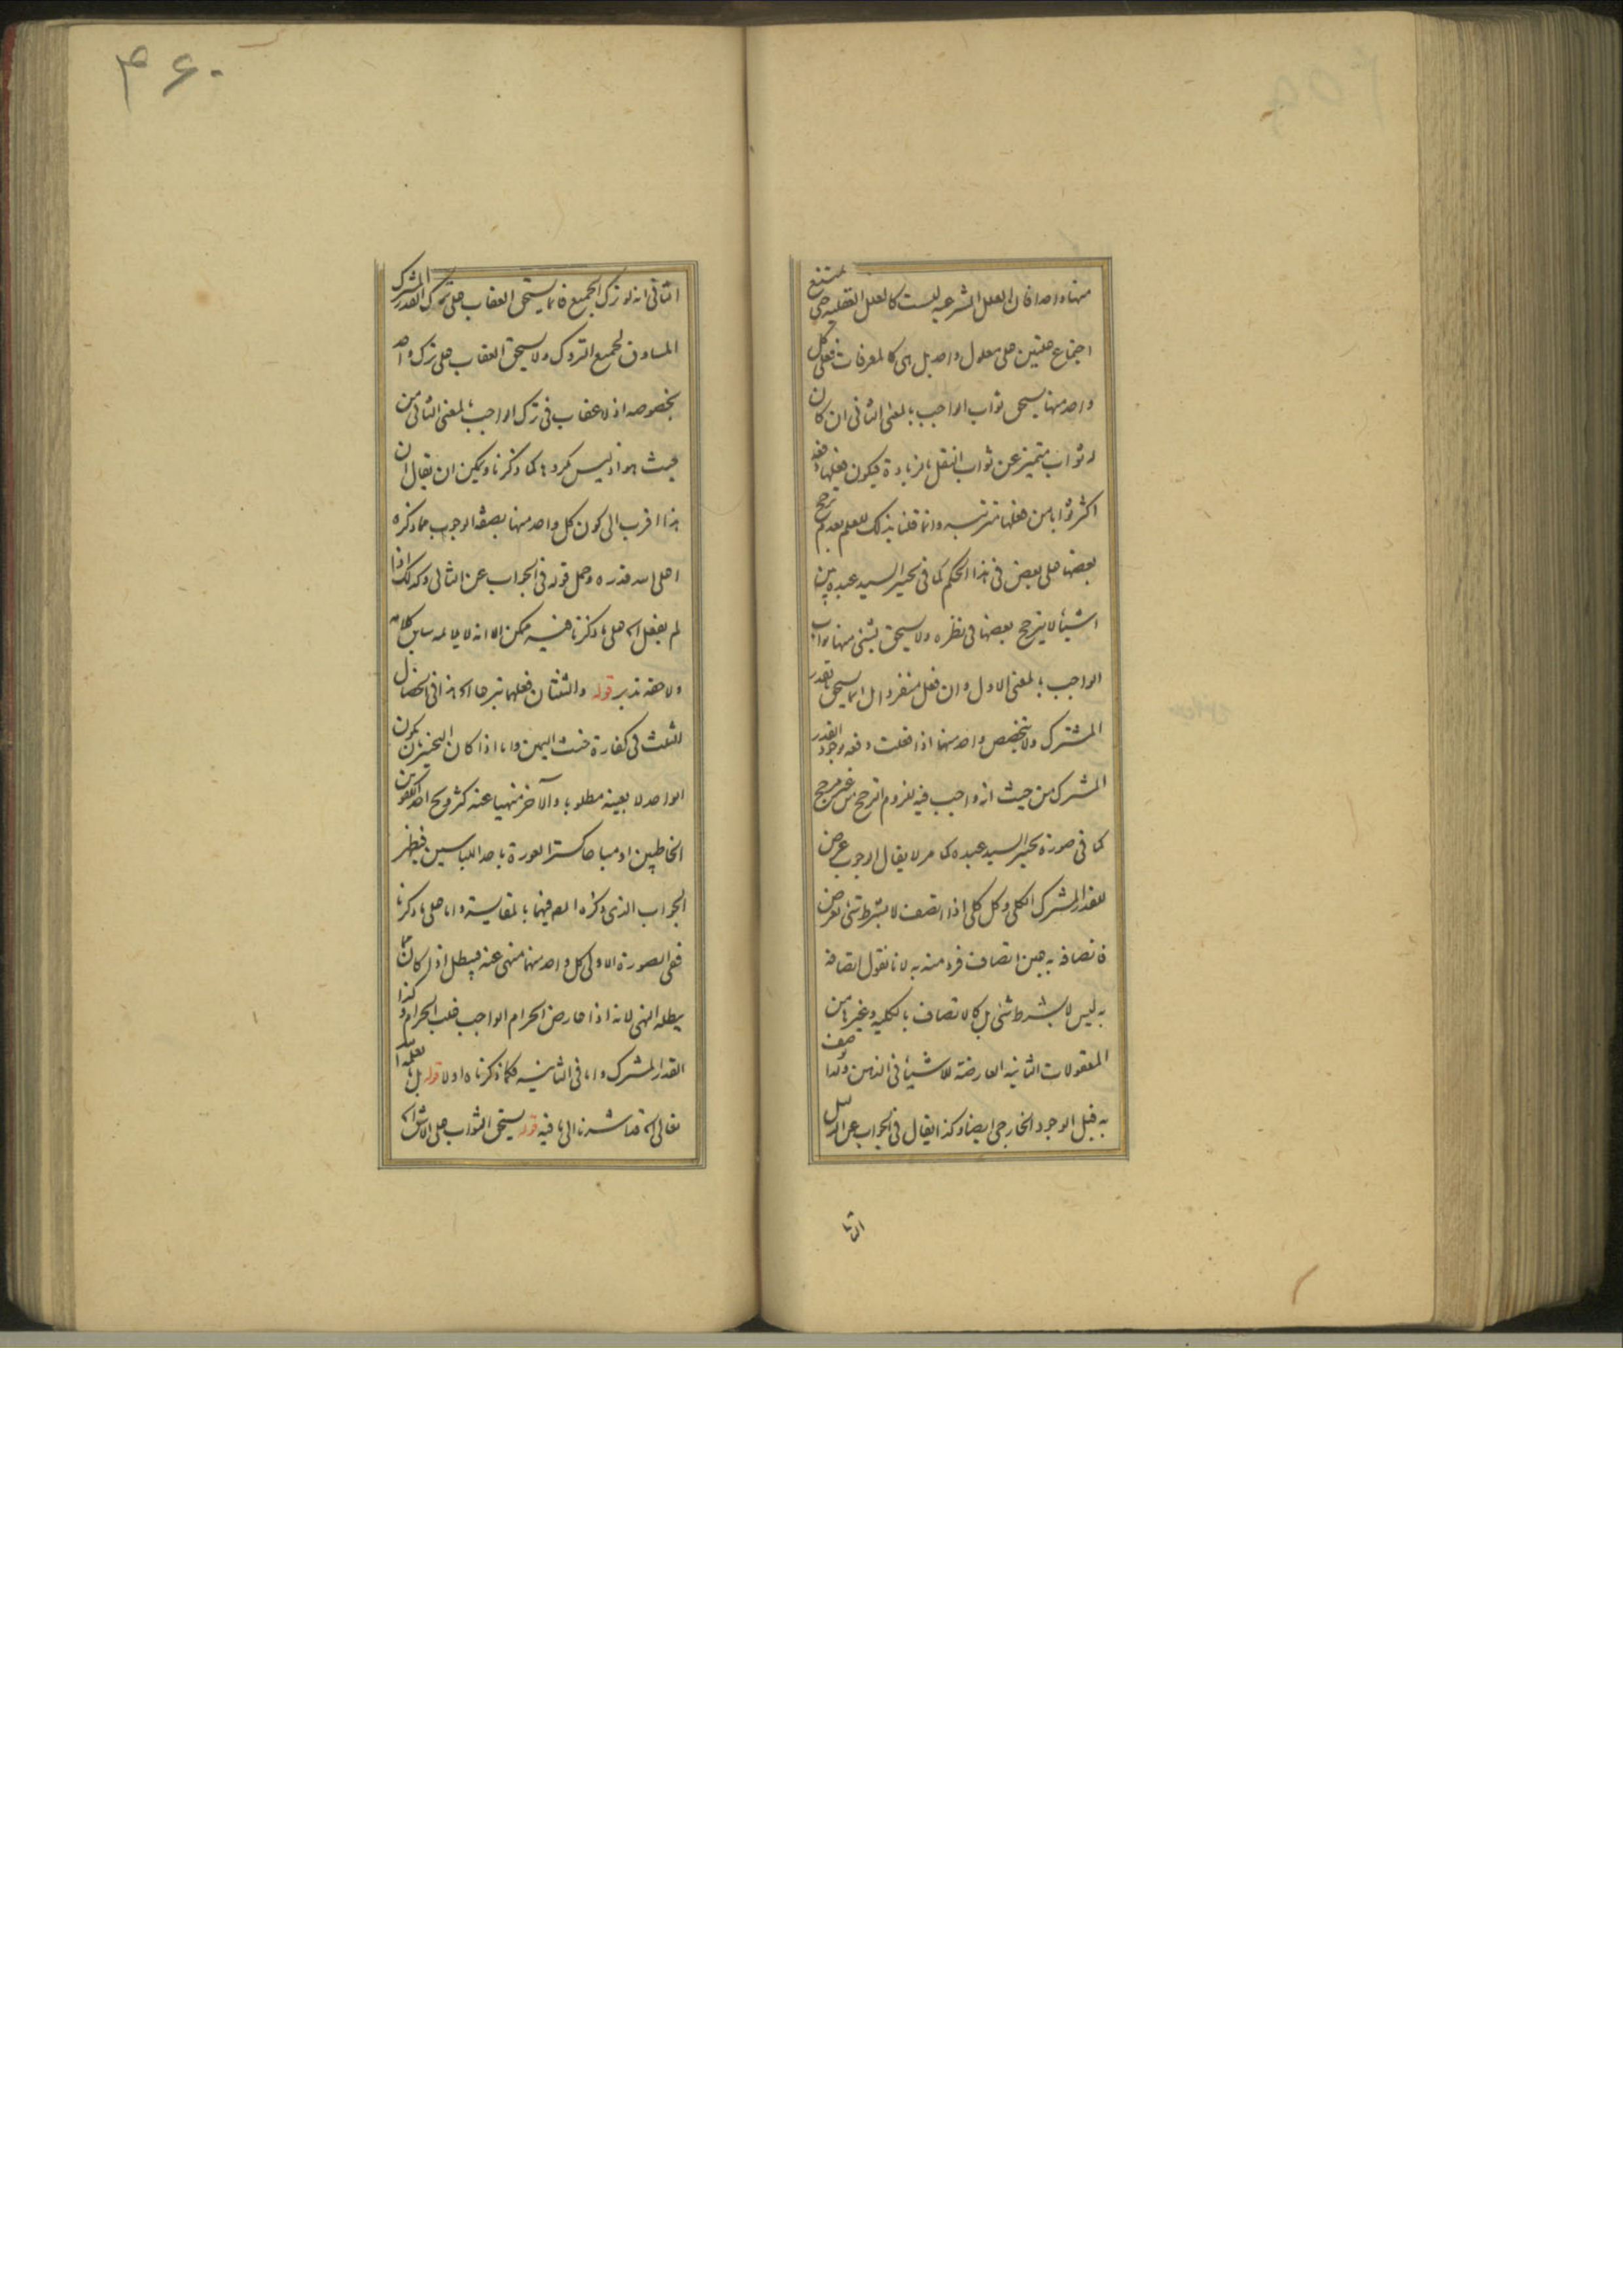 منها واحدا فان العلل الشرعيه ليست كالعلل العقليه حتى يمتنع
اجتماع علتين على معلول واحد بل هى كالمعرفات فعلى كل
واحد منها يستحق ثواب الواجب بالمعنى الثانى ان كان
له ثواب متميز عن ثواب النفل بالزيادة فيكون فعلها دفعة
اكثر ثوابا من فعلها مترتبه وانما قلنا بذلك للعلم بعدم ترجح
بعضها على بعض فى هذا الحكم كما فى تخيير السيد عبده بين
اشيأ لا يترجح بعضها فى نظره ولا يستحق بشئ منها ثواب
الواجب بالمعنى الاول وان فعل منفردا بل انما يستحق بالقدر
المشترك ولا يتخصص واحد منها اذا فعلت دفعه بوجود القدر
المشترك من حيث انه واجب فيه للزوم الترجح من غير مرجح
كما فى صورة تخيير السيد عبده كما مر لا يقال الوجوب عرض
للقدر المشترك الكلى وكل كلى اذا اتصف لا بشرط شئ بعرض
فاتصافه به عين اتصاف فرد منه به لانا نقول اتصافه
به ليس لا بشرط شئ بل كالاتصاف بالكليه وغيرها من
المعقولات الثانيه العارضة للاشيأ فى الذهن ولذا وصف
به قبل الوجود الخارجى ايضا وكذا يقال فى الجواب عن الدليل
الثا
۴۶۰
الثانى انه لو ترك الجميع فانما يستحق العقاب على ترك القدر المشترك
المساوق لجميع التروك ولا يستحق العقاب على ترك واحد
بخصوصه اذ لا عقاب فى ترك الواجب بالمعنى الثانى من
حيث هو اذ ليس مكروها كما ذكرنا ويمكن ان يقال ان
هذا اقرب الى كون كل واحد منها بصفة الوجوب مما ذكره
اعلى الله قدره وحمل قوله فى الجواب عن الثانى وكذلك اذا
لم يفعل اه على ما ذكرنا فيه ممكن الا انه لا يلائمه سابق كلامه
ولاحقه تدبر قوله والثنتان فعلهما تبرعا اه هذا فى الخصال
الثلث فى كفارة حنث اليمين واما اذا كان التخيير بان يكون
الواحد لا بعينه مطلوبا والآخر منهيا عنه كتزويج احد الكفوين
الخاطبين او مباحا كستر العورة باحد اللباسين فيظهر
الجواب الذى ذكره المص فيهما بالمقايسة واما على ما ذكرنا
ففى الصورة الاولى كل واحد منهما منهى عنه فيبطل اذا كان مما
يبطله النهى لانه اذا عارض الحرام الواجب غلب الحرام وكذا
القدر المشترك واما فى الثانيه فكما ذكرناه اولا قوله بل يعلمه الله
تعالى اه قد اشرنا الى ما فيه قوله يستحق الثواب على الاشق اه